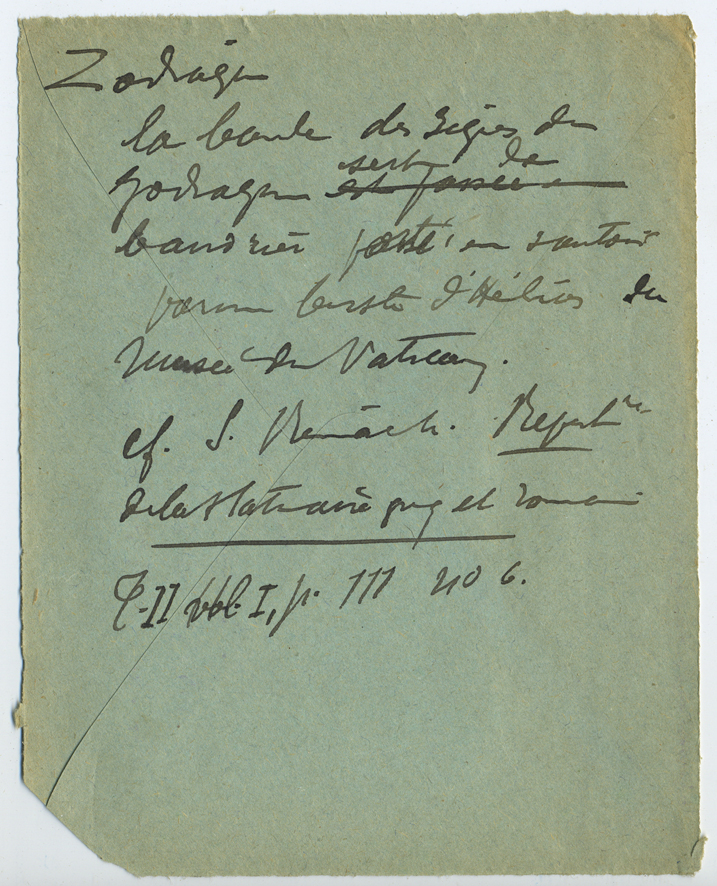 Zodiaque
la bande des signes du
sert de
zodiaque est passée en
baudrier porté en sautoir
par un buste d'Hélios du
Musée du Vatican.
cf. S. Reinach. Répertre
de la statuaire grq et romaine
T. II vol. I, p. 111 no 6.